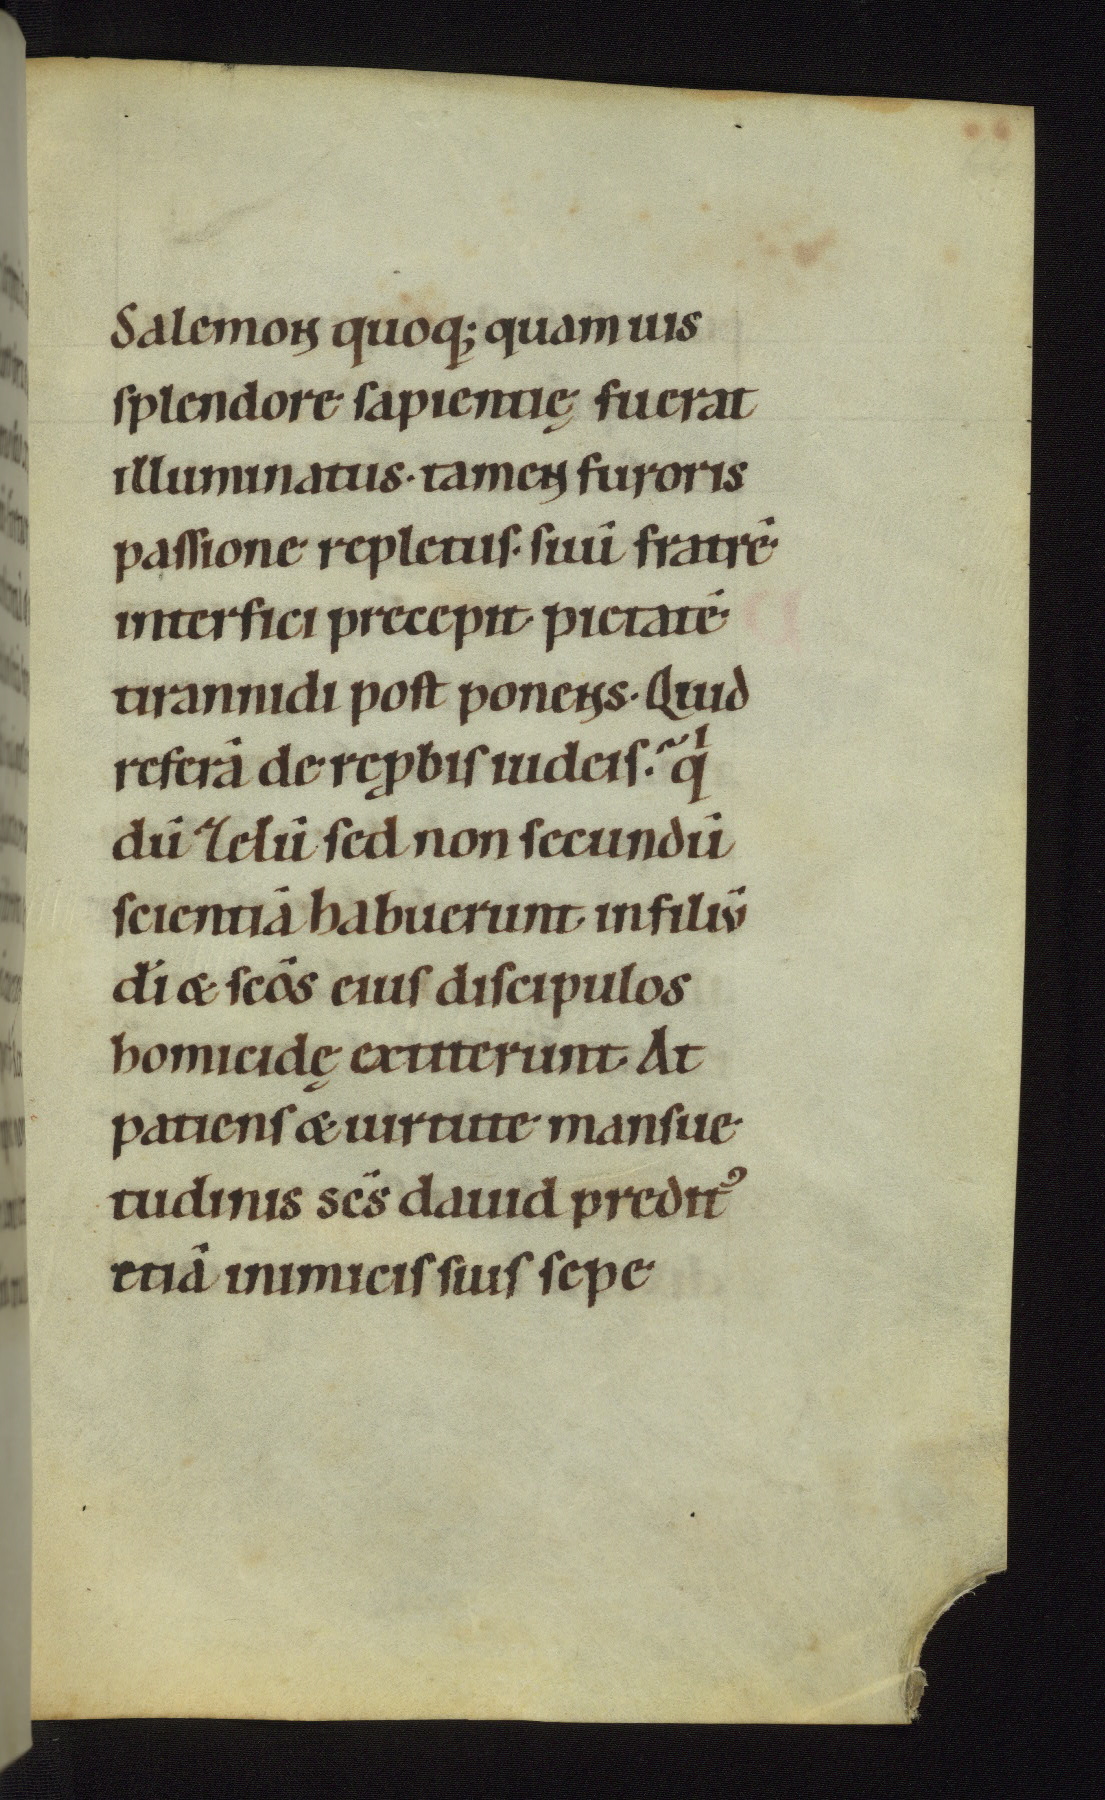 Salemon quoq; quamuis
splendore sapientię fuerat
illuminatus· tamen furoris
passione repletus· suū fratrē
interfici precepit· pietatē
tirannidi post ponens· Quid
referā de rep̱bis iudeis·̃ qⁱ
dū zelū sed non secundū
scientiā habuerunt in filiū
dī & scōs eius discipulos
homicidę extiterunt· At
patiens & uirtute mansue
tudinis scs̄ dauid predit⁹
etiā inimicis suis sepe